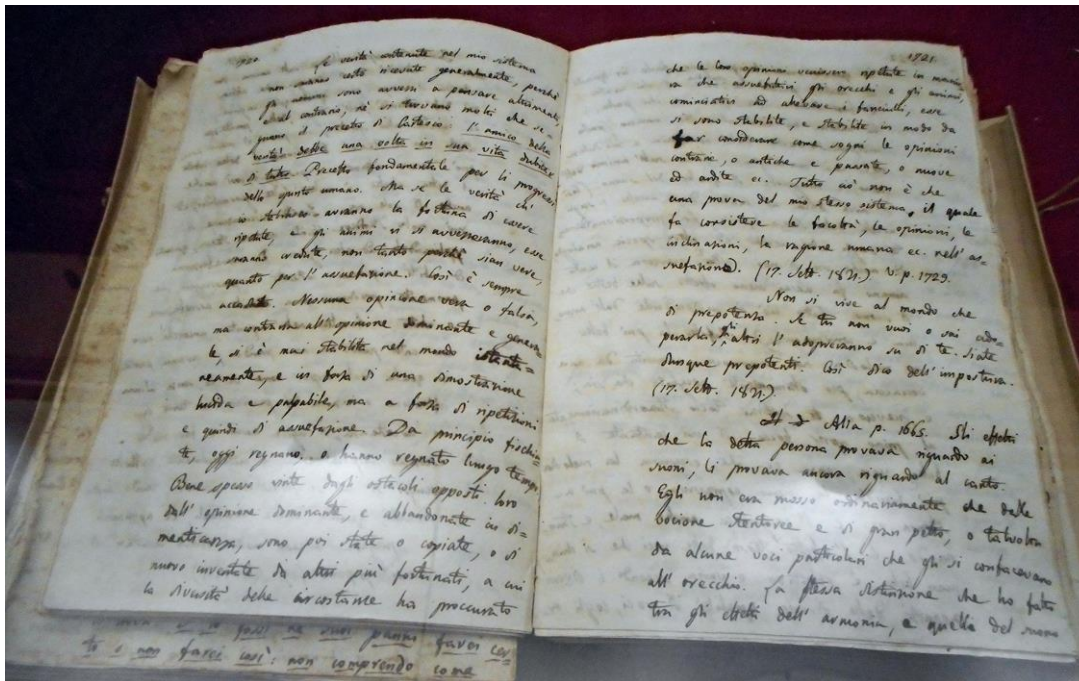 1720
Le verità contenute nel mio sistema
non saranno certo ricevute generalmente, perchè
gli uomini sono avvezzi a pensare altrimenti,
e al contrario, nè si trovano molti che se=
guano il precetto di Cartesio: l'amico della
verità debbe una volta in sua vita dubitar
di tutto. Precetto fondamentale per li progressi
dello spirito umano. Ma se le verità ch'
io stabilisco avranno la fortuna di essere
ripetute, e gli animi vi si avvezzeranno, esse
saranno credute, non tanto perchè sian vere,
quanto per l'assuefazione. Così è sempre
accaduto. Nessuna opinione vera o falsa,
ma contraria all'opinione dominante e genera=
le, si è mai stabilita nel mondo istanta=
neamente, e in forza di una dimostrazione
lucida e palpabile, ma a forza di ripetizioni
e quindi di assuefazione. Da principio fischia=
te, oggi regnano, o hanno regnato lungo tempo.
Bene spesso vinte dagli ostacoli opposti loro
dall'opinione dominante, e abbandonate in di=
menticanza, sono poi state o copiate, o di
nuovo inventate da altri più fortunati, a cui
la diversità delle circostanze ha procurato
1721
che le loro opinioni venissero ripetute in manie=
ra che assuefattivi gli orecchi e gli animi,
cominciatisi ad allevare i fanciulli, esse
si sono stabilite, e stabilite in modo da
far considerare come sogni le opinioni
contrarie, o antiche e passate, o nuove
ed ardite ec. Tutto ciò non è che
una prova del mio stesso sistema, il quale
fa consistere le facoltà, le opinioni, le
inclinazioni, la ragione umana ec. nell'as=
suefazione. (17. Sett. 1821.) V. p. 1729.
Non si vive al mondo che
di prepotenza. Se tu non vuoi o sai ado=
perarla, gli altri l'adopreranno su di te. Siate
dunque prepotenti. Così dico dell'impostura.
(17. Sett. 1821.)
Alla p. 1665. Gli effetti
che la detta persona provava riguardo ai
suoni, li provava ancora riguardo al canto.
Egli non era mosso ordinariamente che dalle
vocione stentoree e di gran petto, o talvolta
da alcune voci particolari che gli si confacevano
all'orecchio. La stessa distinzione che ho fatta
tra gli effetti dell'armonia, e quelli del suono
se io fossi ne suoi panni farei cer
to e non farei così: non comprendo come